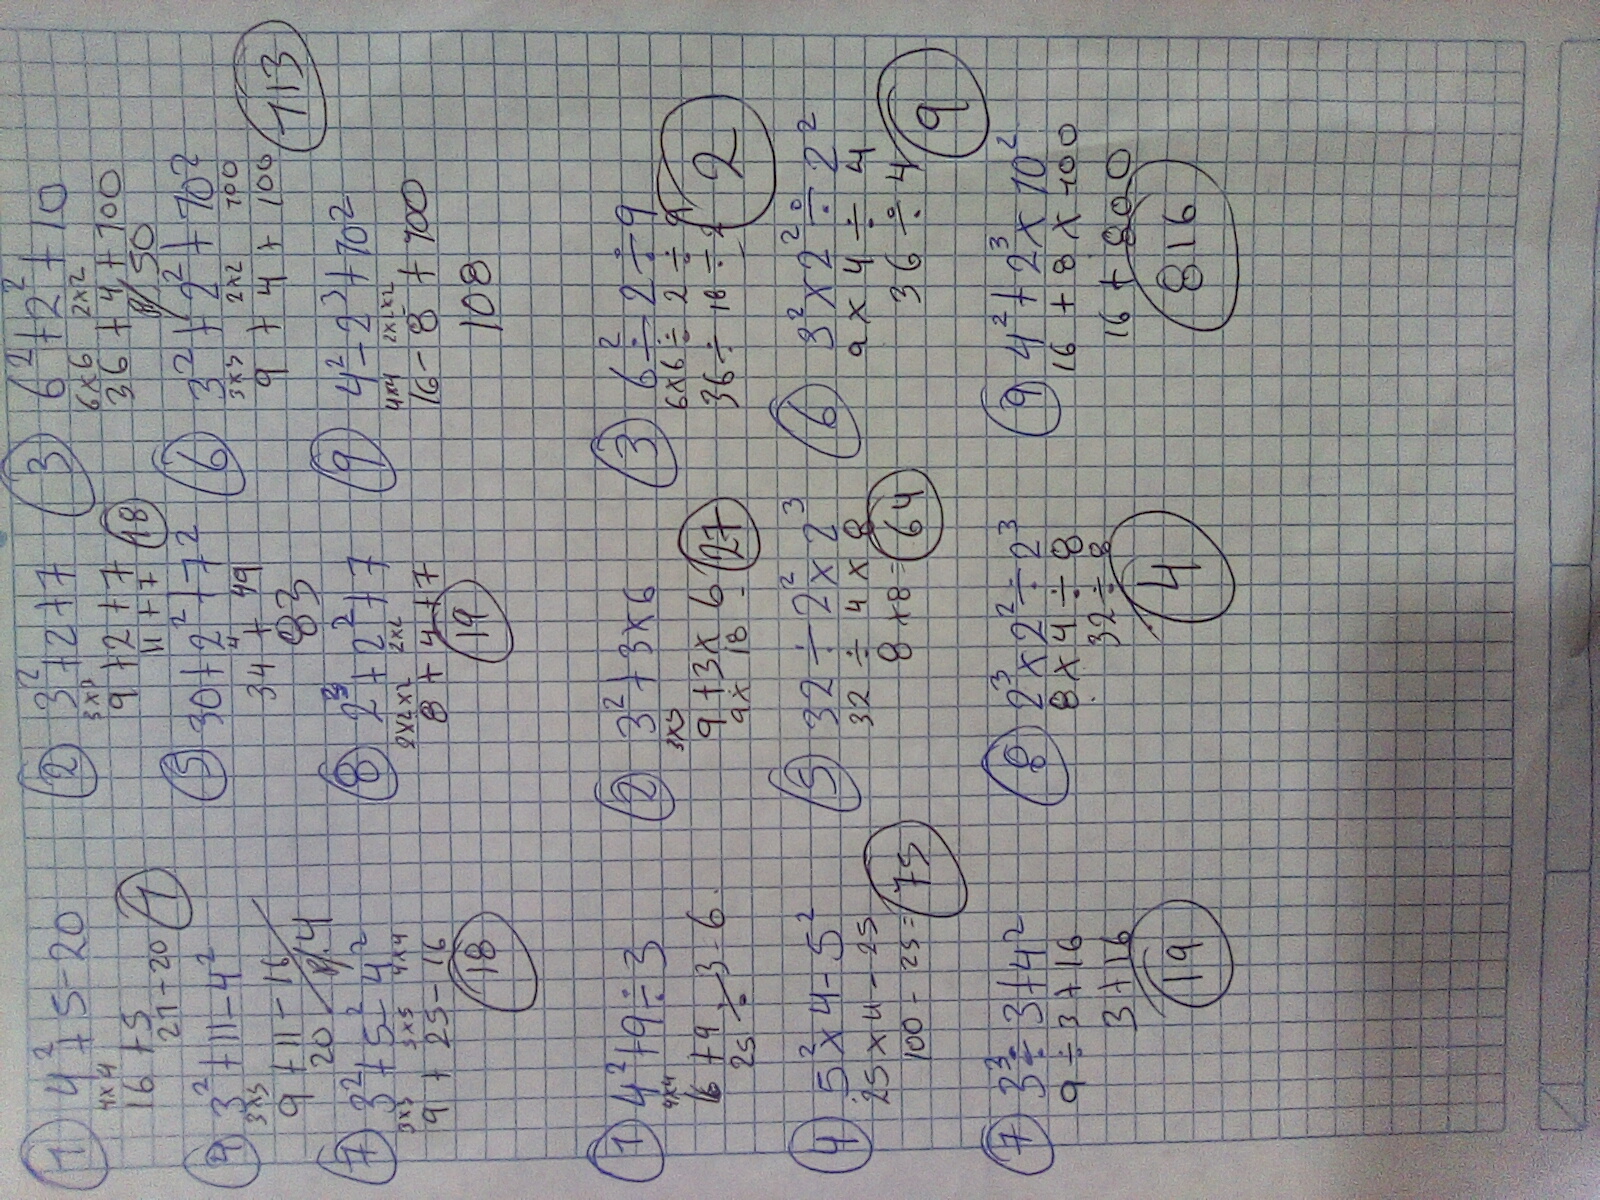 1 4² + 5 - 20
4x4
16 + 5
21 - 20 1
2 3² + 2 + 7
3x3
9 + 2 + 7
11 + 7 18
3 6² + 2² + 10
6x6 2x2
36 + 4 + 100
50
4 3² + 11 - 4²
3x3
9 + 11 - 16
20 4
5 30 + 2² + 7²
4 49
34 +
83
6 3² + 2² + 10²
3x3 2x2 100
9 + 4 + 100
113
7 3² + 5² - 4²
3x3 5x5 4x4
9 + 25 - 16
18
8 2³ + 2² + 7
2x2x2 2x2
8 + 4 + 7
19
9 4² - 2³ + 10²
4x4 2x2x2
16 - 8 + 100
108
1 4² + 9 ÷ 3
4x4
16 + 9 ÷ 3 6
25
2 3² + 3 x 6
3x3
9 + 3 x 6
9x 18 - 27
3 6² ÷ 2 ÷ 9
6x6 ÷ 2 ÷ 9
36 ÷ 18 ÷
2
4 5² x 4 - 5²
25 x 4 - 25
100 - 25 = 75
5 32 ÷ 2² x 2³
32 ÷ 4 x 8
8 x 8 = 64
6 3² x 2² ÷ 2²
9 x 4 ÷ 4
36 ÷ 4 9
7 3³ ÷ 3 + 4²
9 ÷ 3 + 16
3 + 16
19
8 2³ x 2² ÷ 2³
8 x 4 ÷ 8
32 ÷ 8
4
9 4² + 2³ x 10²
16 + 8 x 100
16 + 800
816